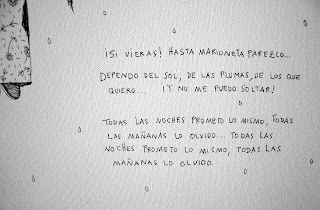 ¡SI VIERAS! HASTA MARIONETA PAREZCO...
DEPENDO DEL SOL, DE LAS PLUMAS, DE LOS QUE
QUIERO... ¡Y NO ME PUEDO SOLTAR!
TODAS LAS NOCHES PROMETO LO MISMO, TODAS
LAS MAÑANAS LO OLVIDO... TODAS LAS
NOCHES PROMETO LO MISMO, TODAS LAS
MAÑANAS LO OLVIDO.